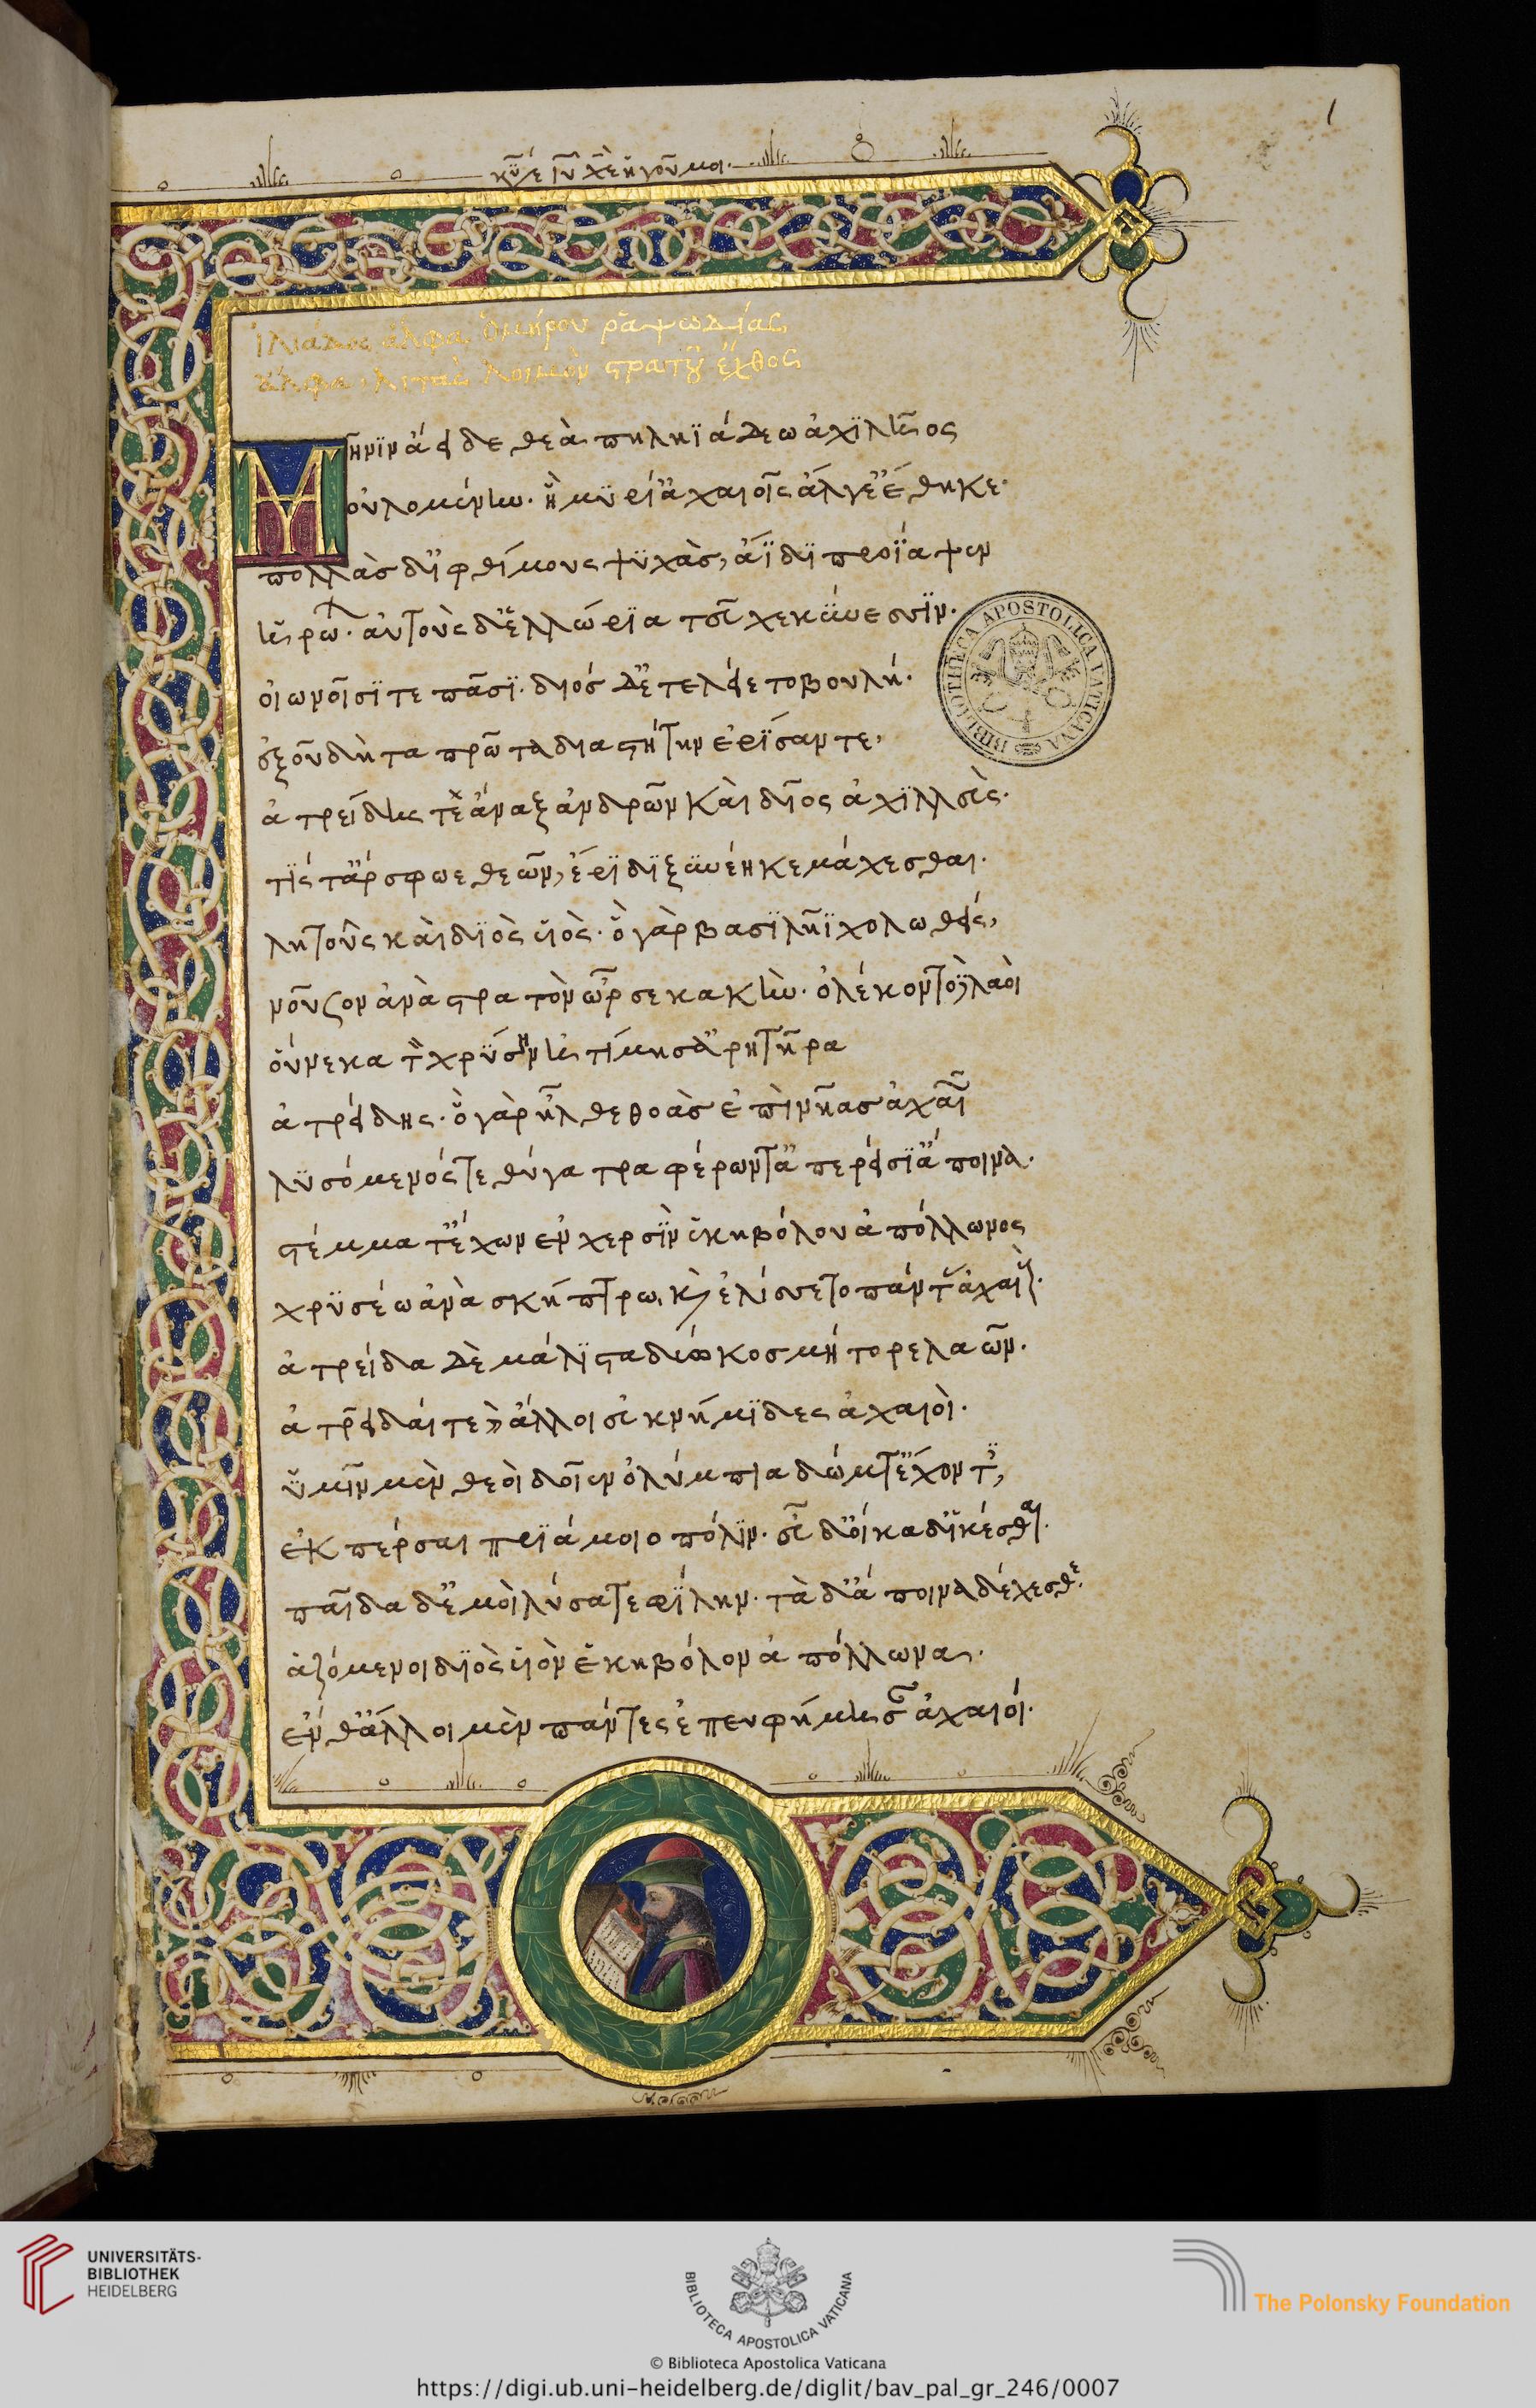 1
κύριε ἰησοῦ χριστὲ ἡγοῦμαι.
ἰλιάδος ἄλφα ὁμήρου ῥαψωδίας
ἄλφα λιτὰς λοιμὸν στρατοῦ ἔχθος
Μῆνιν ἄειδε θεὰ πηληϊάδεω ἀχιλῆος
οὐλομένην. ἣ μυρί' ἀχαιοῖς ἄλγε' ἔθηκε.
πολλὰσ δ' ἰφθίμους ψυχὰσ, ἄϊδι προΐαψεν
ἡρώων. αὐτοὺς δ' ἑλλώρια τεῦχε κύνεσσιν.
οἰωνοῖσί τε πᾶσι. διόσ δ' ἐτελείετο βουλή.
ἐξ οὗ δὴ τα πρῶτα διαστήτην ἐρίσαντε,
ἀτρείδης τε ἄναξ ἀνδρῶν καὶ δῖος ἀχιλλεὺς.
τίς τ' ἄρ σφωε θεῶν, ἔριδι ξυνέηκε μάχεσθαι.
λητοῦς καὶ διὸς υἱὸς. ὃ γὰρ βασιλῆϊ χολωθείς,
νοῦσον ἀνὰ στρατὸν ὦρσε κακὴν. ὀλέκοντο δὲ λαοὶ
οὕνεκα τὸν χρύσην ἠτίμησ' ἀρητῆρα
ἀτρείδης. ὃ γὰρ ἦλθε θοὰσ ἐπὶ νῆασ ἀχαιῶν
λυσόμενός τε θύγατρα φέρων τ' ἀπερείσι' ἄποινα.
στέμμα τ' ἔχων εν χερσὶν ἑκηβόλου ἀπόλλωνος
χρυσέω ἀνὰ σκήπτρω, καὶ ἐλίσσετο πάντας ἀχαιούς.
ἀτρείδα δὲ μάλιστα δύω κοσμήτορε λαῶν.
ἀτρείδαι τε καὶ ἄλλοι ἐϋκνήμιδες ἀχαιοὶ.
ὑμῖν μὲν θεὸι δοῖεν ὀλύμπια δώματ' ἔχοντες,
ἐκπέρσαι πριάμοιο πόλιν. εὖ δ' οἴκαδ' ἱκέσθαι.
παῖδα δ' ἐμοὶ λύσατε φίλην. τὰ δ' ἄποινα δέχεσθε.
ἁζόμενοι διὸς υἱὸν ἑκηβόλον ἀπόλλωνα.
ενθ' ἄλλοι μὲν πάντες ἐπευφήμησαν ἀχαιοί.
BIBLIOTECA APOSTOLICA VATICANA
UNIVERSITÄTS-
BIBLIOTHEK
HEIDELBERG
BIBLIOTECA APOSTOLICA VATICANA
The Polonsky Foundation
© Biblioteca Apostolica Vaticana
https://digi.ub.uni-heidelberg.de/diglit/bav_pal_gr_246/0007